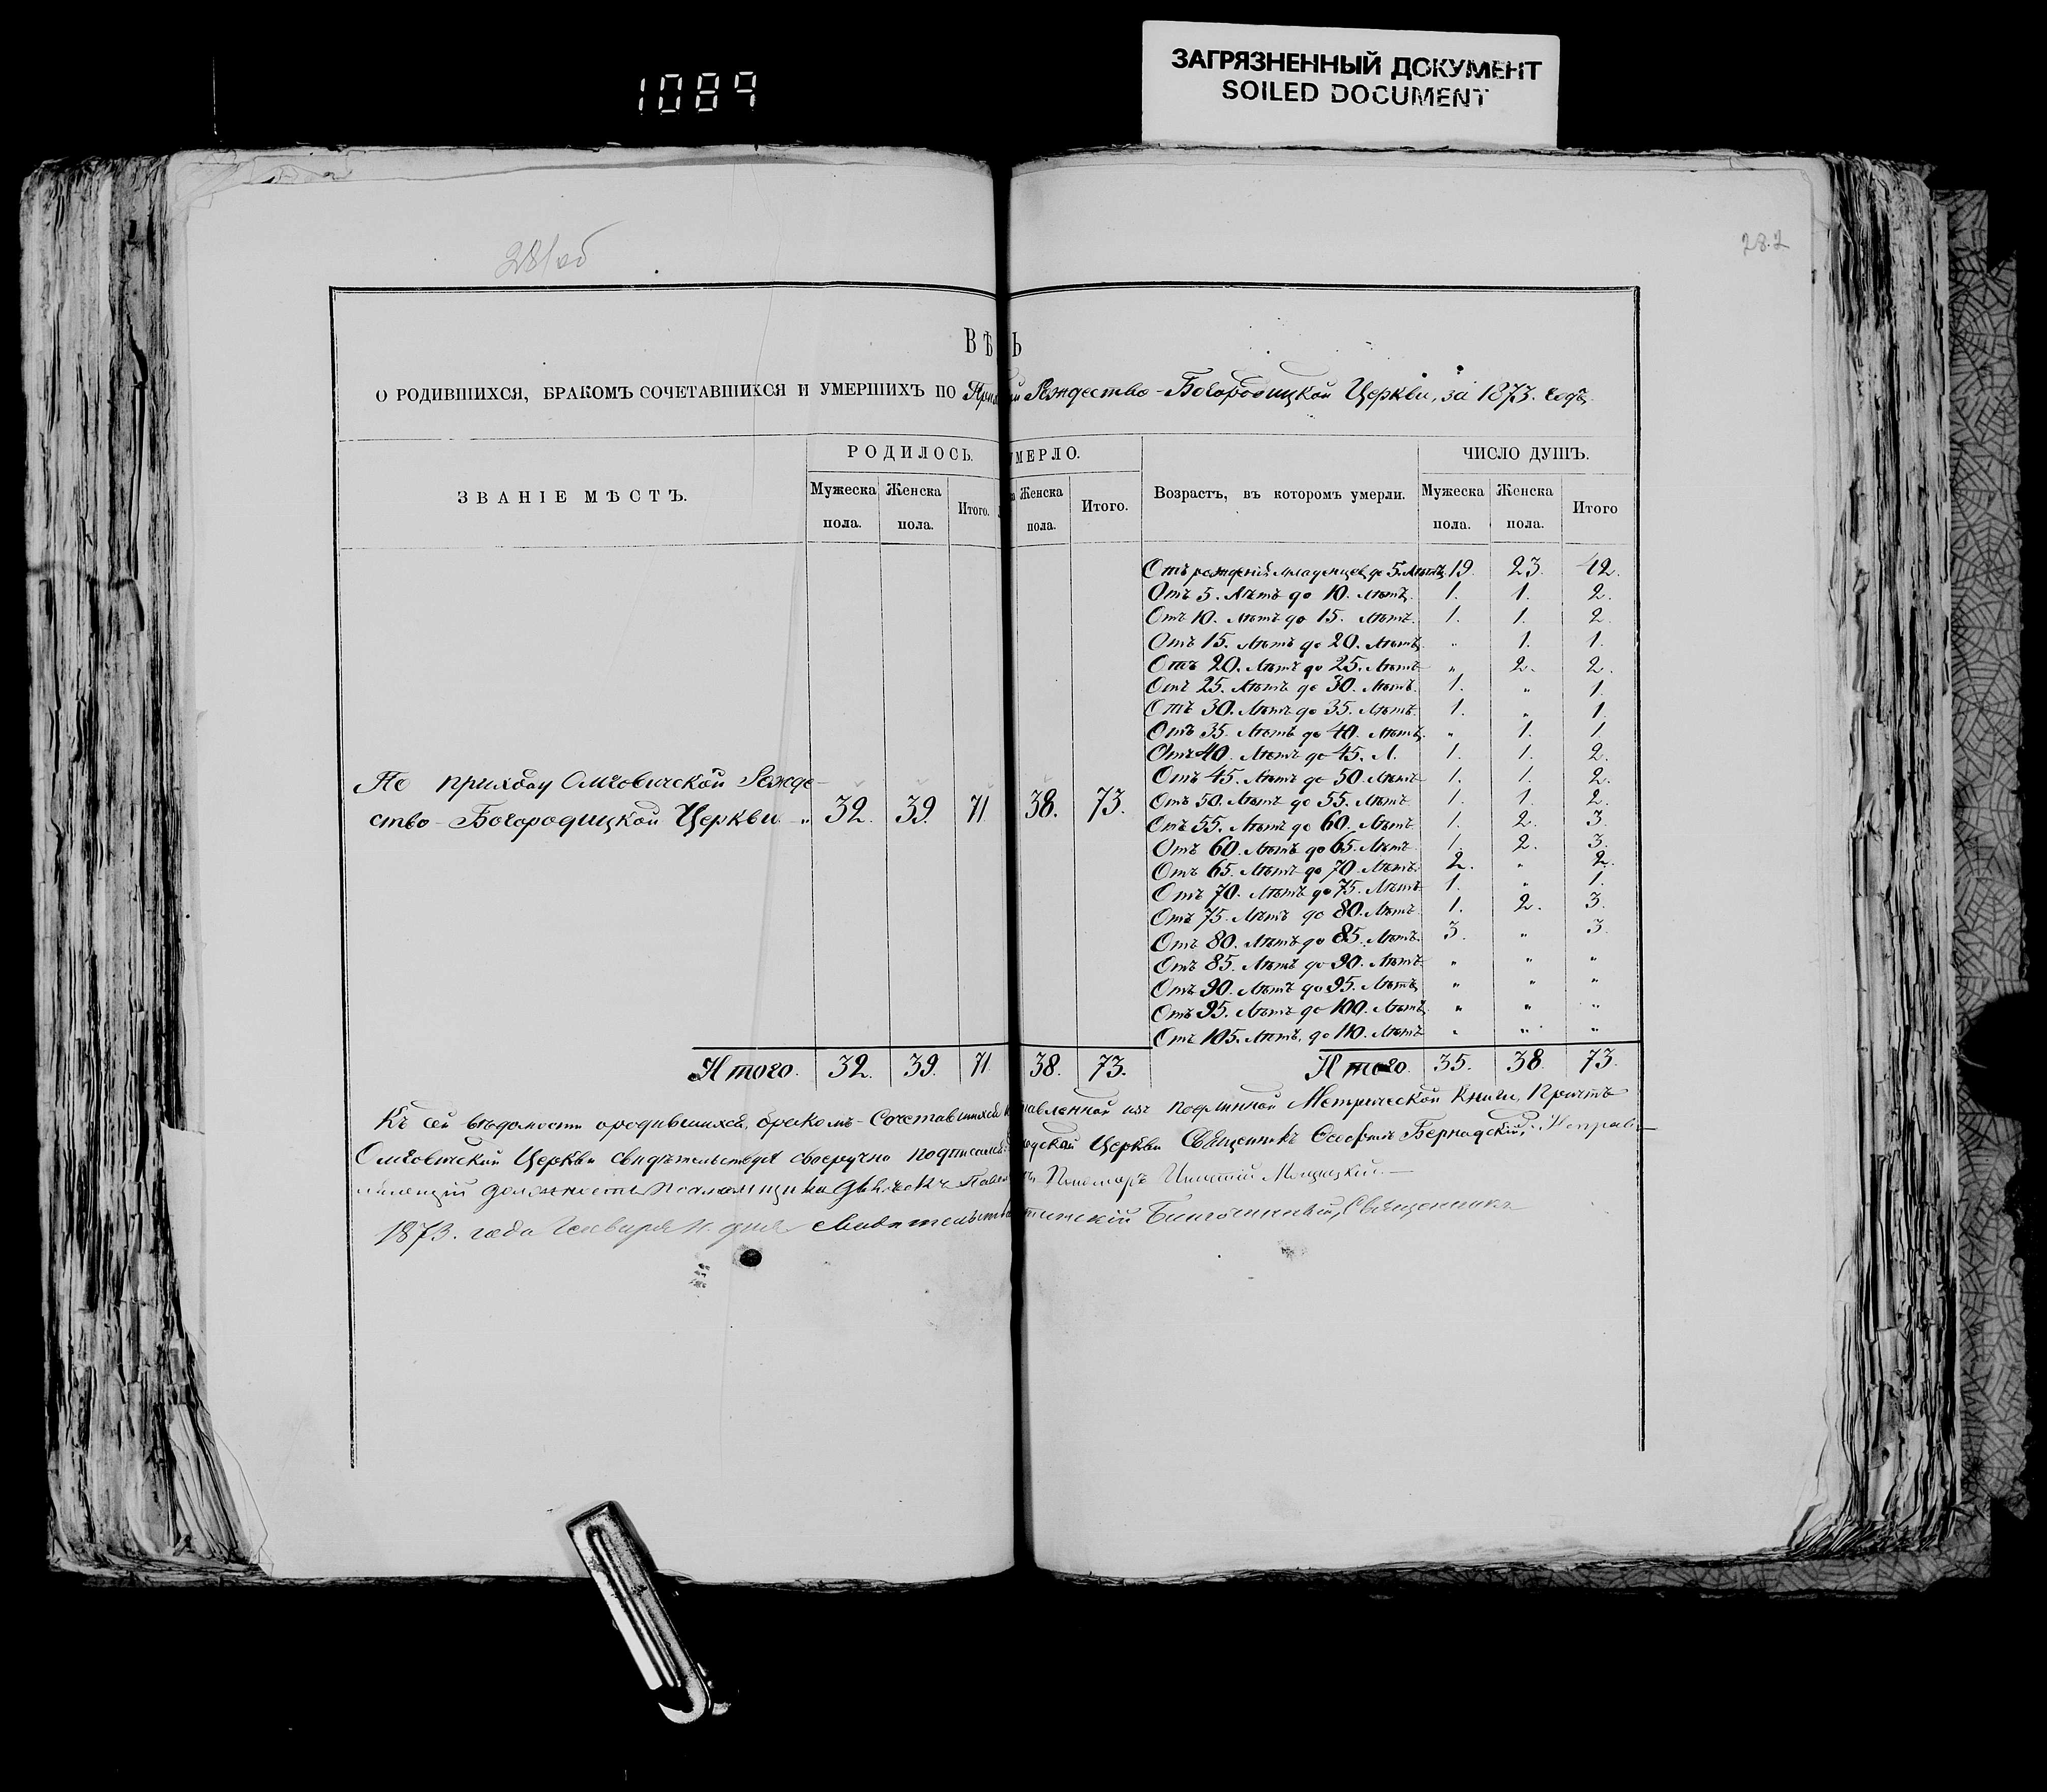 1089
ЗАГРЯЗНЕННЫЙ ДОКУМЕНТ
SOILED DOCUMENT
281об
282
ВѢ Ь
О РОДИВШИХСЯ, БРАКОМЪ СОЧЕТАВШИХСЯ И УМЕРШИХЪ ПО Рождество-Богородицкой Церкви, за 1873. годъ.
ЗВАНІЕ МѢСТЪ. РОДИЛОСЬ. МЕРЛО. Возрастъ, въ которомъ умерли. ЧИСЛО ДУШЪ.
Мужеска пола. Женска пола. Итого. Женска пола. Итого. Мужеска пола. Женска пола. Итого
Отъ рожденія младенцевъ до 5. лѣтъ 19. 23. 42.
Отъ 5. лѣтъ до 10. лѣтъ. 1. 1. 2.
Отъ 10. лѣтъ до 15. лѣтъ. 1. 1. 2.
Отъ 15. лѣтъ до 20. лѣтъ. „ 1. 1.
Отъ 20. лѣтъ до 25. лѣтъ „ 2. 2.
Отъ 25. лѣтъ до 30. лѣтъ. 1. „ 1.
Отъ 30. лѣтъ до 35. лѣтъ 1. „ 1.
Отъ 35. лѣтъ до 40. лѣтъ. „ 1. 1.
Отъ 40. лѣтъ до 45. л. 1. 1. 2.
Отъ 45. лѣтъ до 50. лѣтъ 1. 1. 2.
Отъ 50. лѣтъ до 55. лѣтъ 1. 1. 2.
Отъ 55. лѣтъ до 60. лѣтъ. 1. 2. 3.
Отъ 60. лѣтъ до 65. лѣтъ 1. 2. 3.
Отъ 65. лѣтъ до 70. лѣтъ. 2. „ 2.
Отъ 70. лѣтъ до 75. лѣтъ 1. „ 1.
Отъ 75. лѣтъ до 80. лѣтъ 1. 2. 3.
Отъ 80. лѣтъ до 85. лѣтъ. 3. „ 3.
Отъ 85. лѣтъ до 90. лѣтъ „ „ „
Отъ 90. лѣтъ до 95. лѣтъ „ „ „
Отъ 95. лѣтъ до 100. лѣтъ „ „ „
Отъ 105. лѣтъ до 110. лѣтъ „ „ „
По приходу Рожде-
ство-Богородицкой Церкви „ 32. 39. 71 38. 73.
Итого. 32. 39. 71 38. 73. Итого. 35. 38. 73.
Къ сей вѣдомости о родившихся, бракомъ-Сочетавшихся авленной изъ подлинной Метрической Книги, Причтъ
Церкви свидѣтельствуя своеручно подписали Церкви Священникъ Бернадскій,
должность Псаломщика Пономарь
1873. года Генваря 11. дня Священникъ